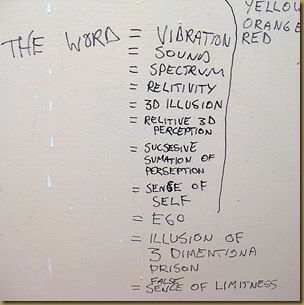 YELLOW
ORANGE
RED
THE WORD = VIBRATION
= SOUND
= SPECTRUM
= RELITIVITY
= 3D ILLUSION
= RELITIVE 3D
PERCEPTION
= SUCSESIVE
SUMATION OF
PERSEPTION
= SENSE OF
SELF
= EGO
= ILLUSION OF
3 DIMENTIONA
PRISON
FALSE
= SENCE OF LIMITNESS